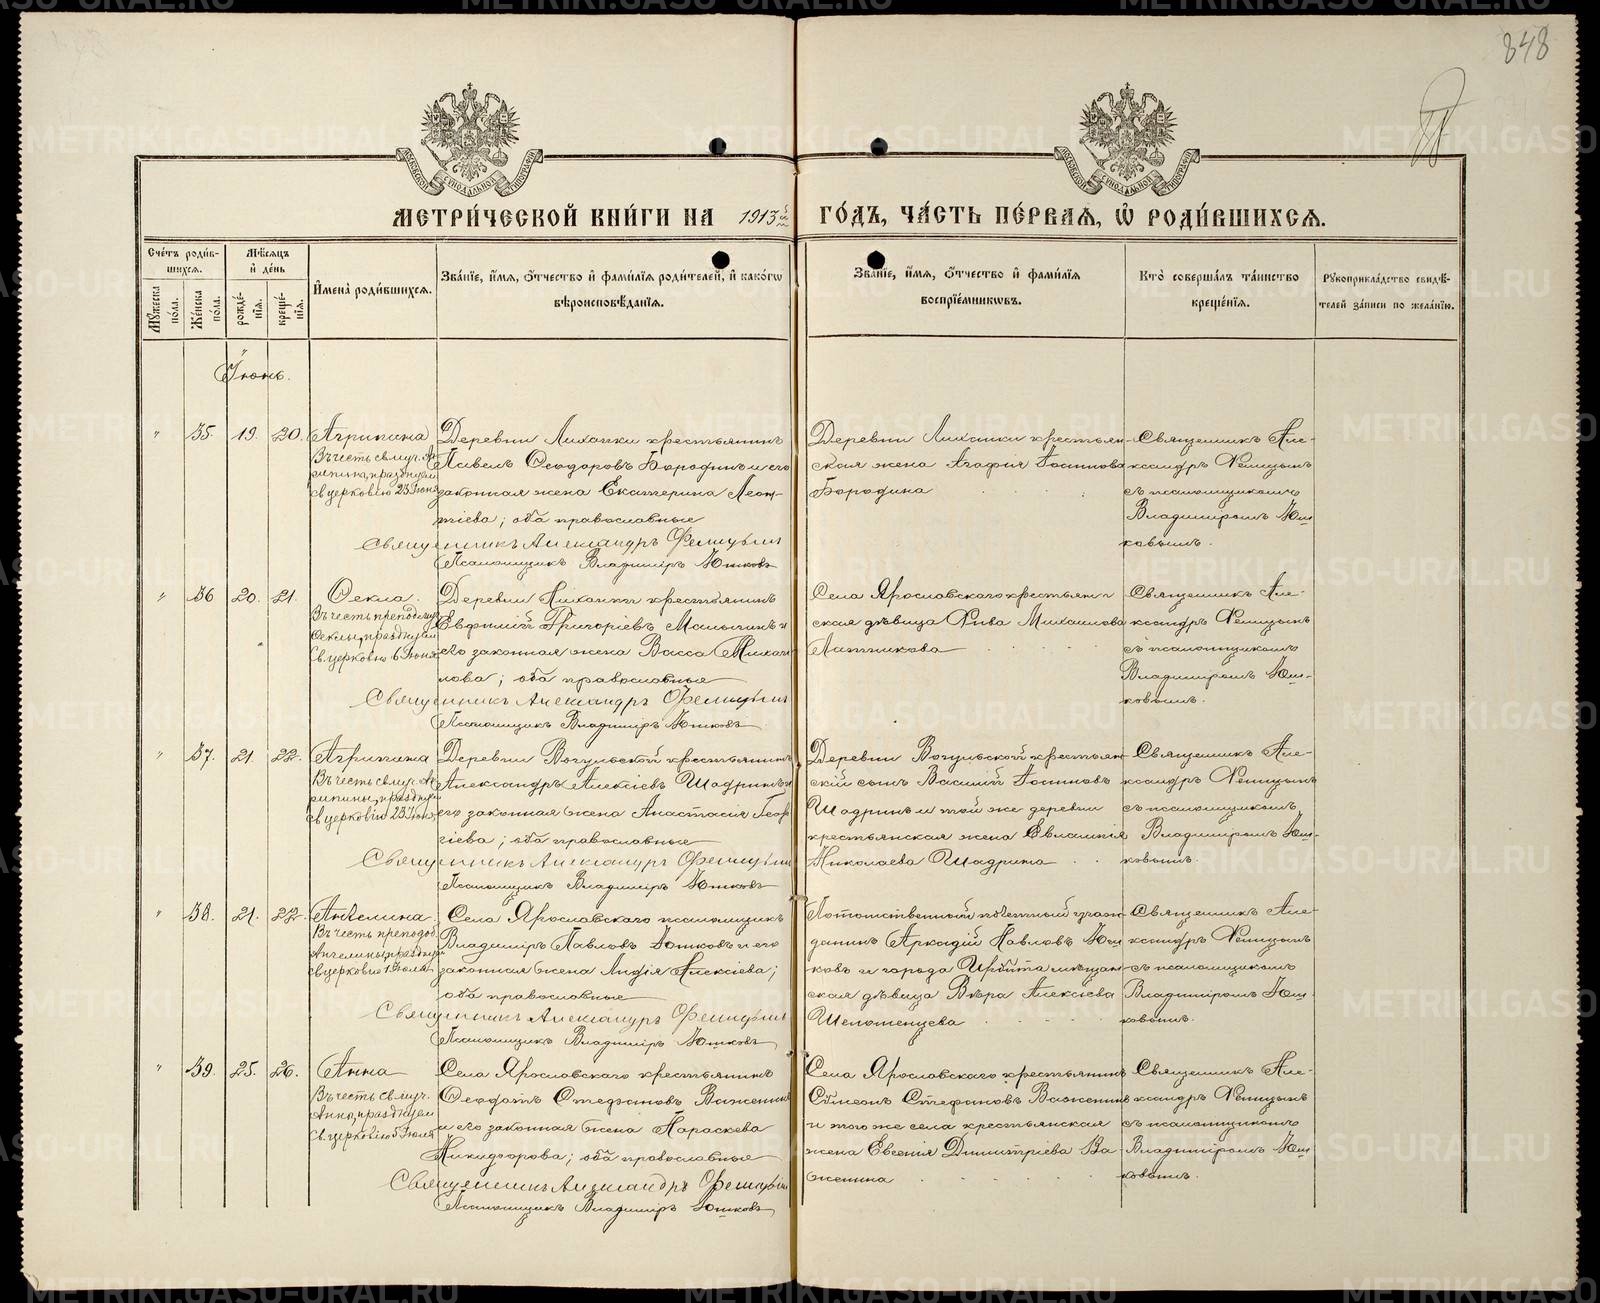 848
МОСКОВСКОЙ СѴНОДАЛЬНОЙ ТИПОГРАФІИ
МОСКОВСКОЙ СѴНОДАЛЬНОЙ ТИПОГРАФІИ
МЕТРИ́ЧЕСКОЙ КНИ́ГИ НА 1913й ГО́ДЪ, ЧА́СТЬ ПЕ́РВАѦ, Ѡ҆ РОДИ́ВШИХСѦ.
Сче́тъ роди́в-
шихсѧ.
Мꙋ́жеска по́ла.
Же́нска по́ла.
Мѣ́сѧцъ и҆ де́нь
рожде́-нїѧ.
креще́-нїѧ.
И҆мена̀ роди́вшихсѧ.
Зва́нїе, и҆́мѧ, ѻ҆́тчество и҆ фами́лїѧ роди́телей, и҆ како́гѡ
вѣроисповѣ́данїѧ.
Зва́нїе, и҆́мѧ, ѻ҆́тчество и҆ фами́лїѧ
воспрїе́мникѡвъ.
Кто̀ соверша́лъ та́инство
креще́нїѧ.
Рꙋкоприкла́дство свидѣ́-
телей за́писи по жела́нїю.
Іюнь.
" 35. 19. 20. Агрипина
Въ честь св. муч. Аг-
рипины, празднуем.
св. церковію 23 Іюня
Деревни Лихачки крестьянинъ
Павелъ Ѳеодоровъ Бородинъ и его
законная жена Екатерина Леон-
тіева; оба православные
Священникъ Александръ Феницынъ
Псаломщикъ Владиміръ Юшковъ
Деревни Лихачки крестьян-
ская жена Агафія Іоаннова
Бородина
Священникъ Але-
ксандръ Феницынъ
съ псаломщикомъ
Владиміромъ Юш-
ковымъ.
" 36 20. 21. Ѳекла.
Въ честь преподмуч.
Ѳеклы, празднуем.
св. церковію 6 Іюня
Деревни Лихачки крестьянинъ
Евфимій Григоріевъ Малыгинъ и
его законная жена Васса Михаи-
лова; оба православные
Священникъ Александръ Феницынъ
Псаломщикъ Владиміръ Юшковъ
Села Ярославскаго крестьян-
ская дѣвица Михаилова
Латникова
Священникъ Але-
ксандръ Феницынъ
съ псаломщикомъ
Владиміромъ Юш-
ковымъ.
" 37. 21. 22. Агрипина
Въ честь св. муч. Аг-
рипины, празднуем.
св. церковію 23 Іюня
Деревни Вогульской крестьянинъ
Александръ Алексіевъ Шадринъ и
его законная жена Анастасія Геор-
гіева; оба православные
Священникъ Александръ Феницынъ
Псаломщикъ Владиміръ Юшковъ
Деревни Вогульской крестьян-
скій сынъ Василій Іоанновъ
Шадринъ и той же деревни
крестьянская жена Евлампія
Николаева Шадрина
Священникъ Але-
ксандръ Феницынъ
съ псаломщикомъ
Владиміромъ Юш-
ковымъ.
" 38. 21. 22. Ангелина
Въ честь преподоб.
Ангелины, празднуем.
св. церковію 1 Іюля
Села Ярославскаго псаломщикъ
Владиміръ Павловъ Юшковъ и его
законная жена Лидія Алексіева;
оба православные
Священникъ Александръ Феницынъ
Псаломщикъ Владиміръ Юшковъ
Потомственный почетный граж-
данинъ Аркадій Павловъ Юш-
ковъ и города Ирбита мѣщан-
ская дѣвица Вѣра Алексіева
Шеломенцева
Священникъ Але-
ксандръ Феницынъ
съ псаломщикомъ
Владиміромъ Юш-
ковымъ.
" 39. 25. 26. Анна
Въ честь св. муч.
Анны, празднуем.
св. церковію 5 Іюля
Села Ярославскаго крестьянинъ
Ѳеодотъ Стефановъ Важенинъ
и его законная жена Параскева
Никифорова; оба православные
Священникъ Александръ Феницынъ
Псаломщикъ Владиміръ Юшковъ
Села Ярославскаго крестьянинъ
Сѵмеонъ Стефановъ Важенинъ
и того же села крестьянская
жена Евгенія Димитріева Ва-
женина
Священникъ Але-
ксандръ Феницынъ
съ псаломщикомъ
Владиміромъ Юш-
ковымъ.
METRIKI.GASO-URAL.RU